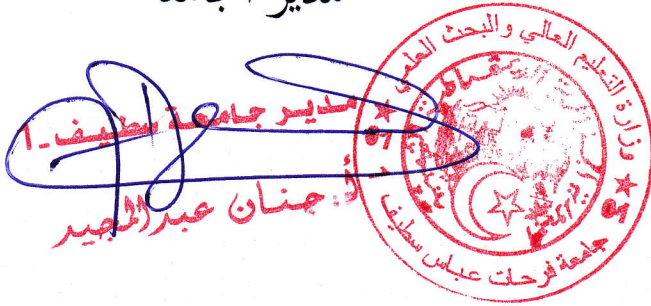 مدير الجامعة
مدير جامعة سطيف-1
أ: جنان عبدالمجيد
وزارة التعليم العالي والبحث العلمي
جامعة فرحات عباس سطيف